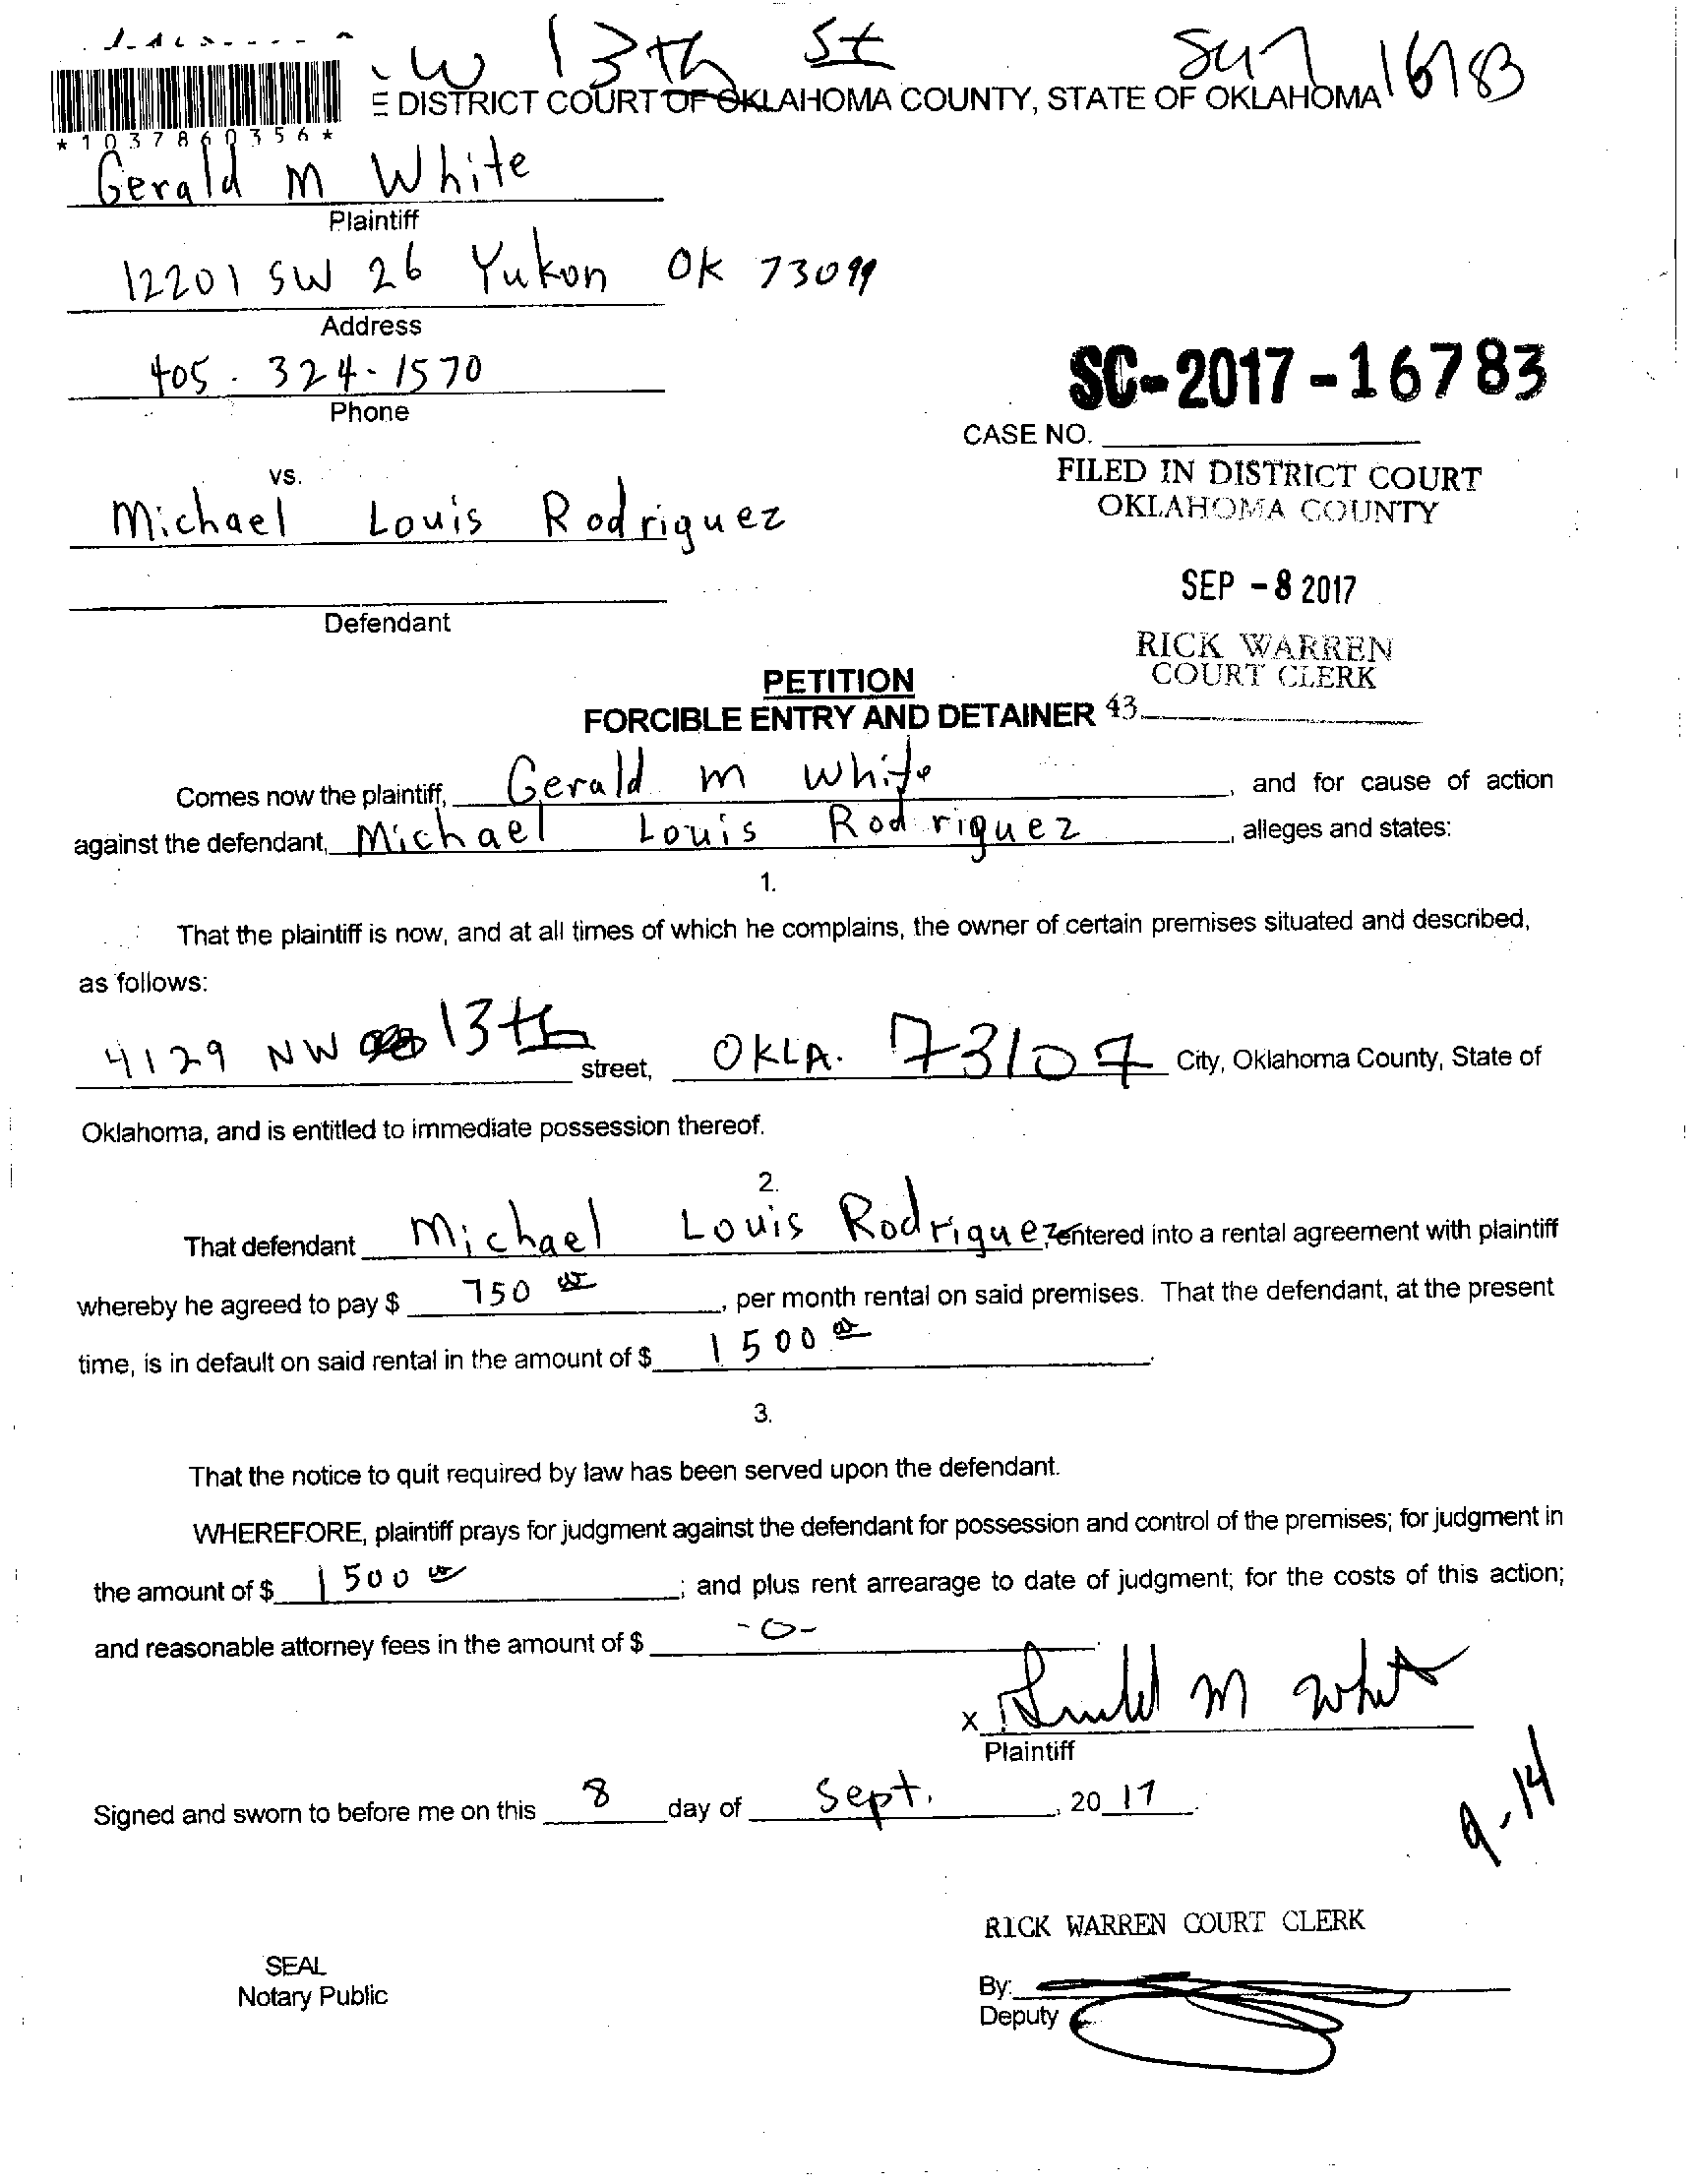 W 13th St
*1037860356*
E DISTRICT COURT OF OKLAHOMA COUNTY, STATE OF OKLAHOMA 16783
Gerald M White
Plaintiff
12201 SW 26 Yukon OK 73099
Address
405 - 324-1570
Phone
SC-2017-16783
CASE NO.
FILED IN DISTRICT COURT
OKLAHOMA COUNTY
vs.
Michael Louis Rodriguez
SEP -8 2017
Defendant
RICK WARREN
COURT CLERK
PETITION
FORCIBLE ENTRY AND DETAINER 43
Comes now the plaintiff, Gerald M White, and for cause of action
against the defendant, Michael Louis Rodriguez, alleges and states:
1.
That the plaintiff is now, and at all times of which he complains, the owner of certain premises situated and described,
as follows:
4129 NW 13th street, OKLA. 73107 City, Oklahoma County, State of
Oklahoma, and is entitled to immediate possession thereof.
2.
That defendant Michael Louis Rodriguez entered into a rental agreement with plaintiff
whereby he agreed to pay $ 750 00, per month rental on said premises. That the defendant, at the present
time, is in default on said rental in the amount of $ 1500 00.
3.
That the notice to quit required by law has been served upon the defendant.
WHEREFORE, plaintiff prays for judgment against the defendant for possession and control of the premises; for judgment in
the amount of $ 1500 00; and plus rent arrearage to date of judgment; for the costs of this action;
and reasonable attorney fees in the amount of $ -0-
X Gerald M White
Plaintiff
Signed and sworn to before me on this 8 day of Sept., 2017.
9-14
RICK WARREN COURT CLERK
SEAL
Notary Public
By:
Deputy